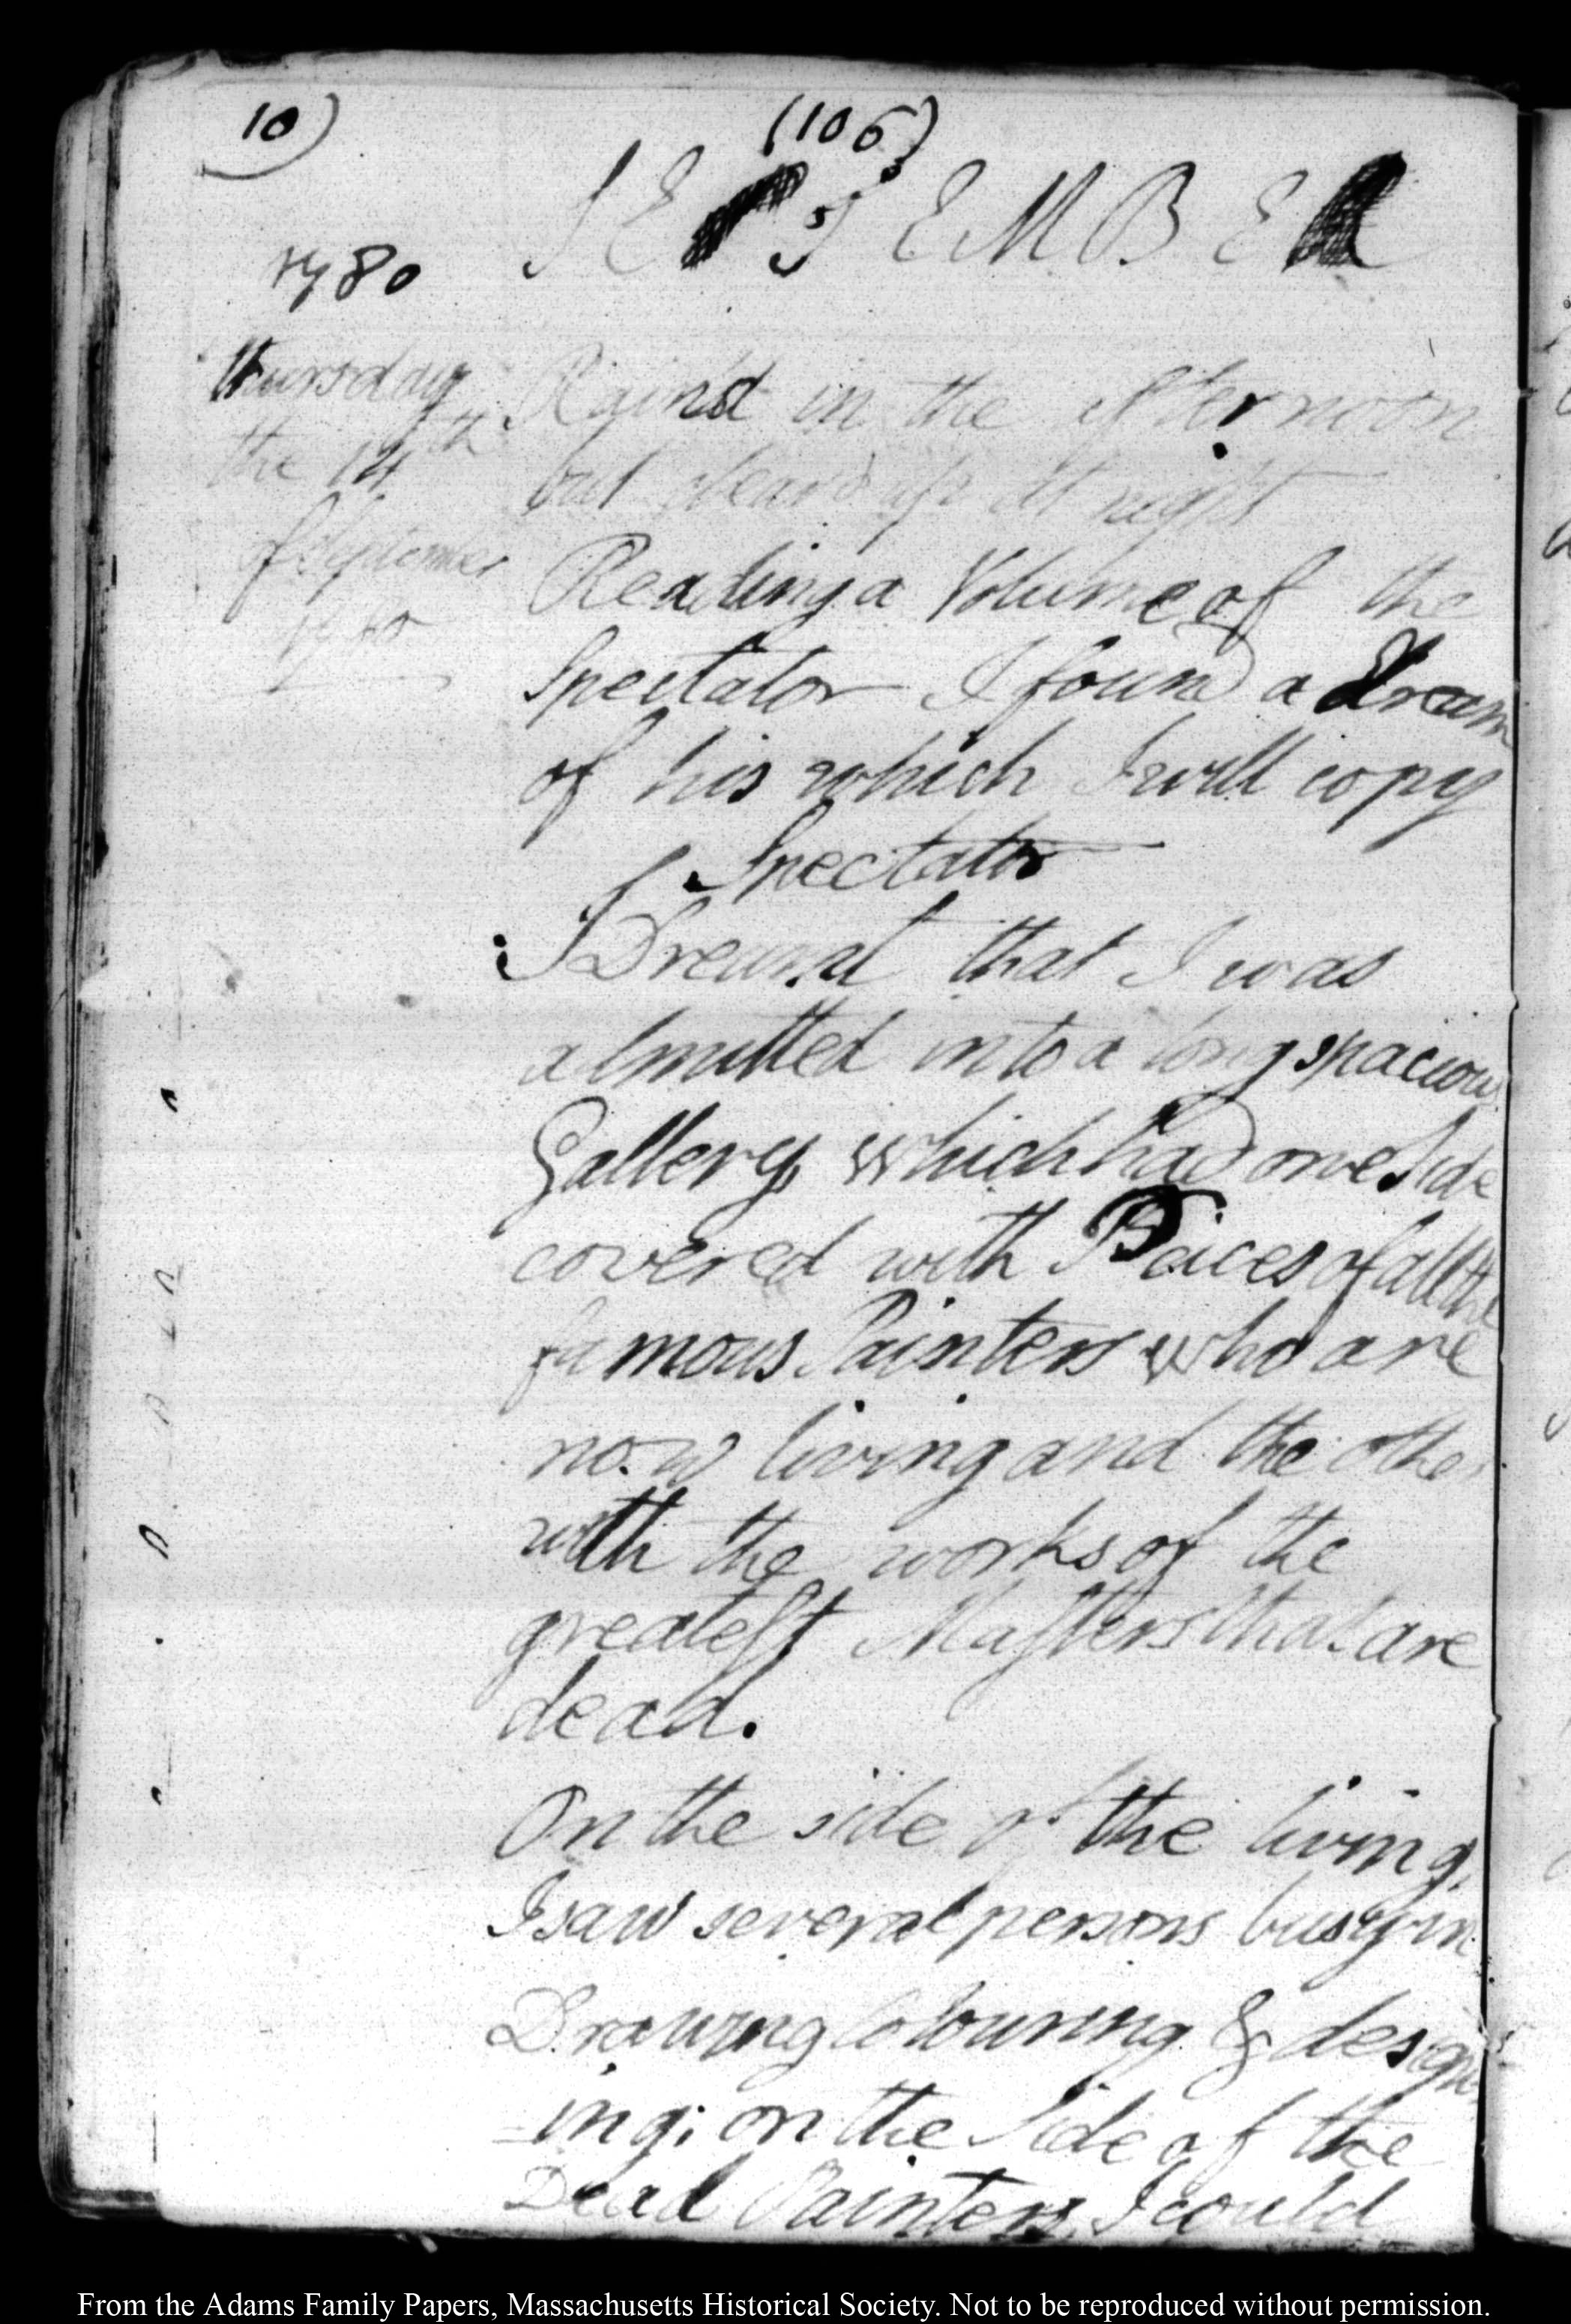 10)
(106)
SEPTEMBER
1780
thursday
the 14th
of September
1780
Rain'd in the afternoon
but clear'd up at night
Reading a Volume of the
Spectator I found a Dream
of his which I will copy
Spectator
I Dreamt that I was
admitted into a long spacious
Gallery which had one Side
covered with Peices of all the
famous Painters who are
now living and the other
with the works of the
greatest Masters that are
dead.
On the side of the living,
I saw several persons busy in
Drawing Colouring & design
ing; on the Side of the
Dead Painters I could
From the Adams Family Papers, Massachusetts Historical Society. Not to be reproduced without permission.